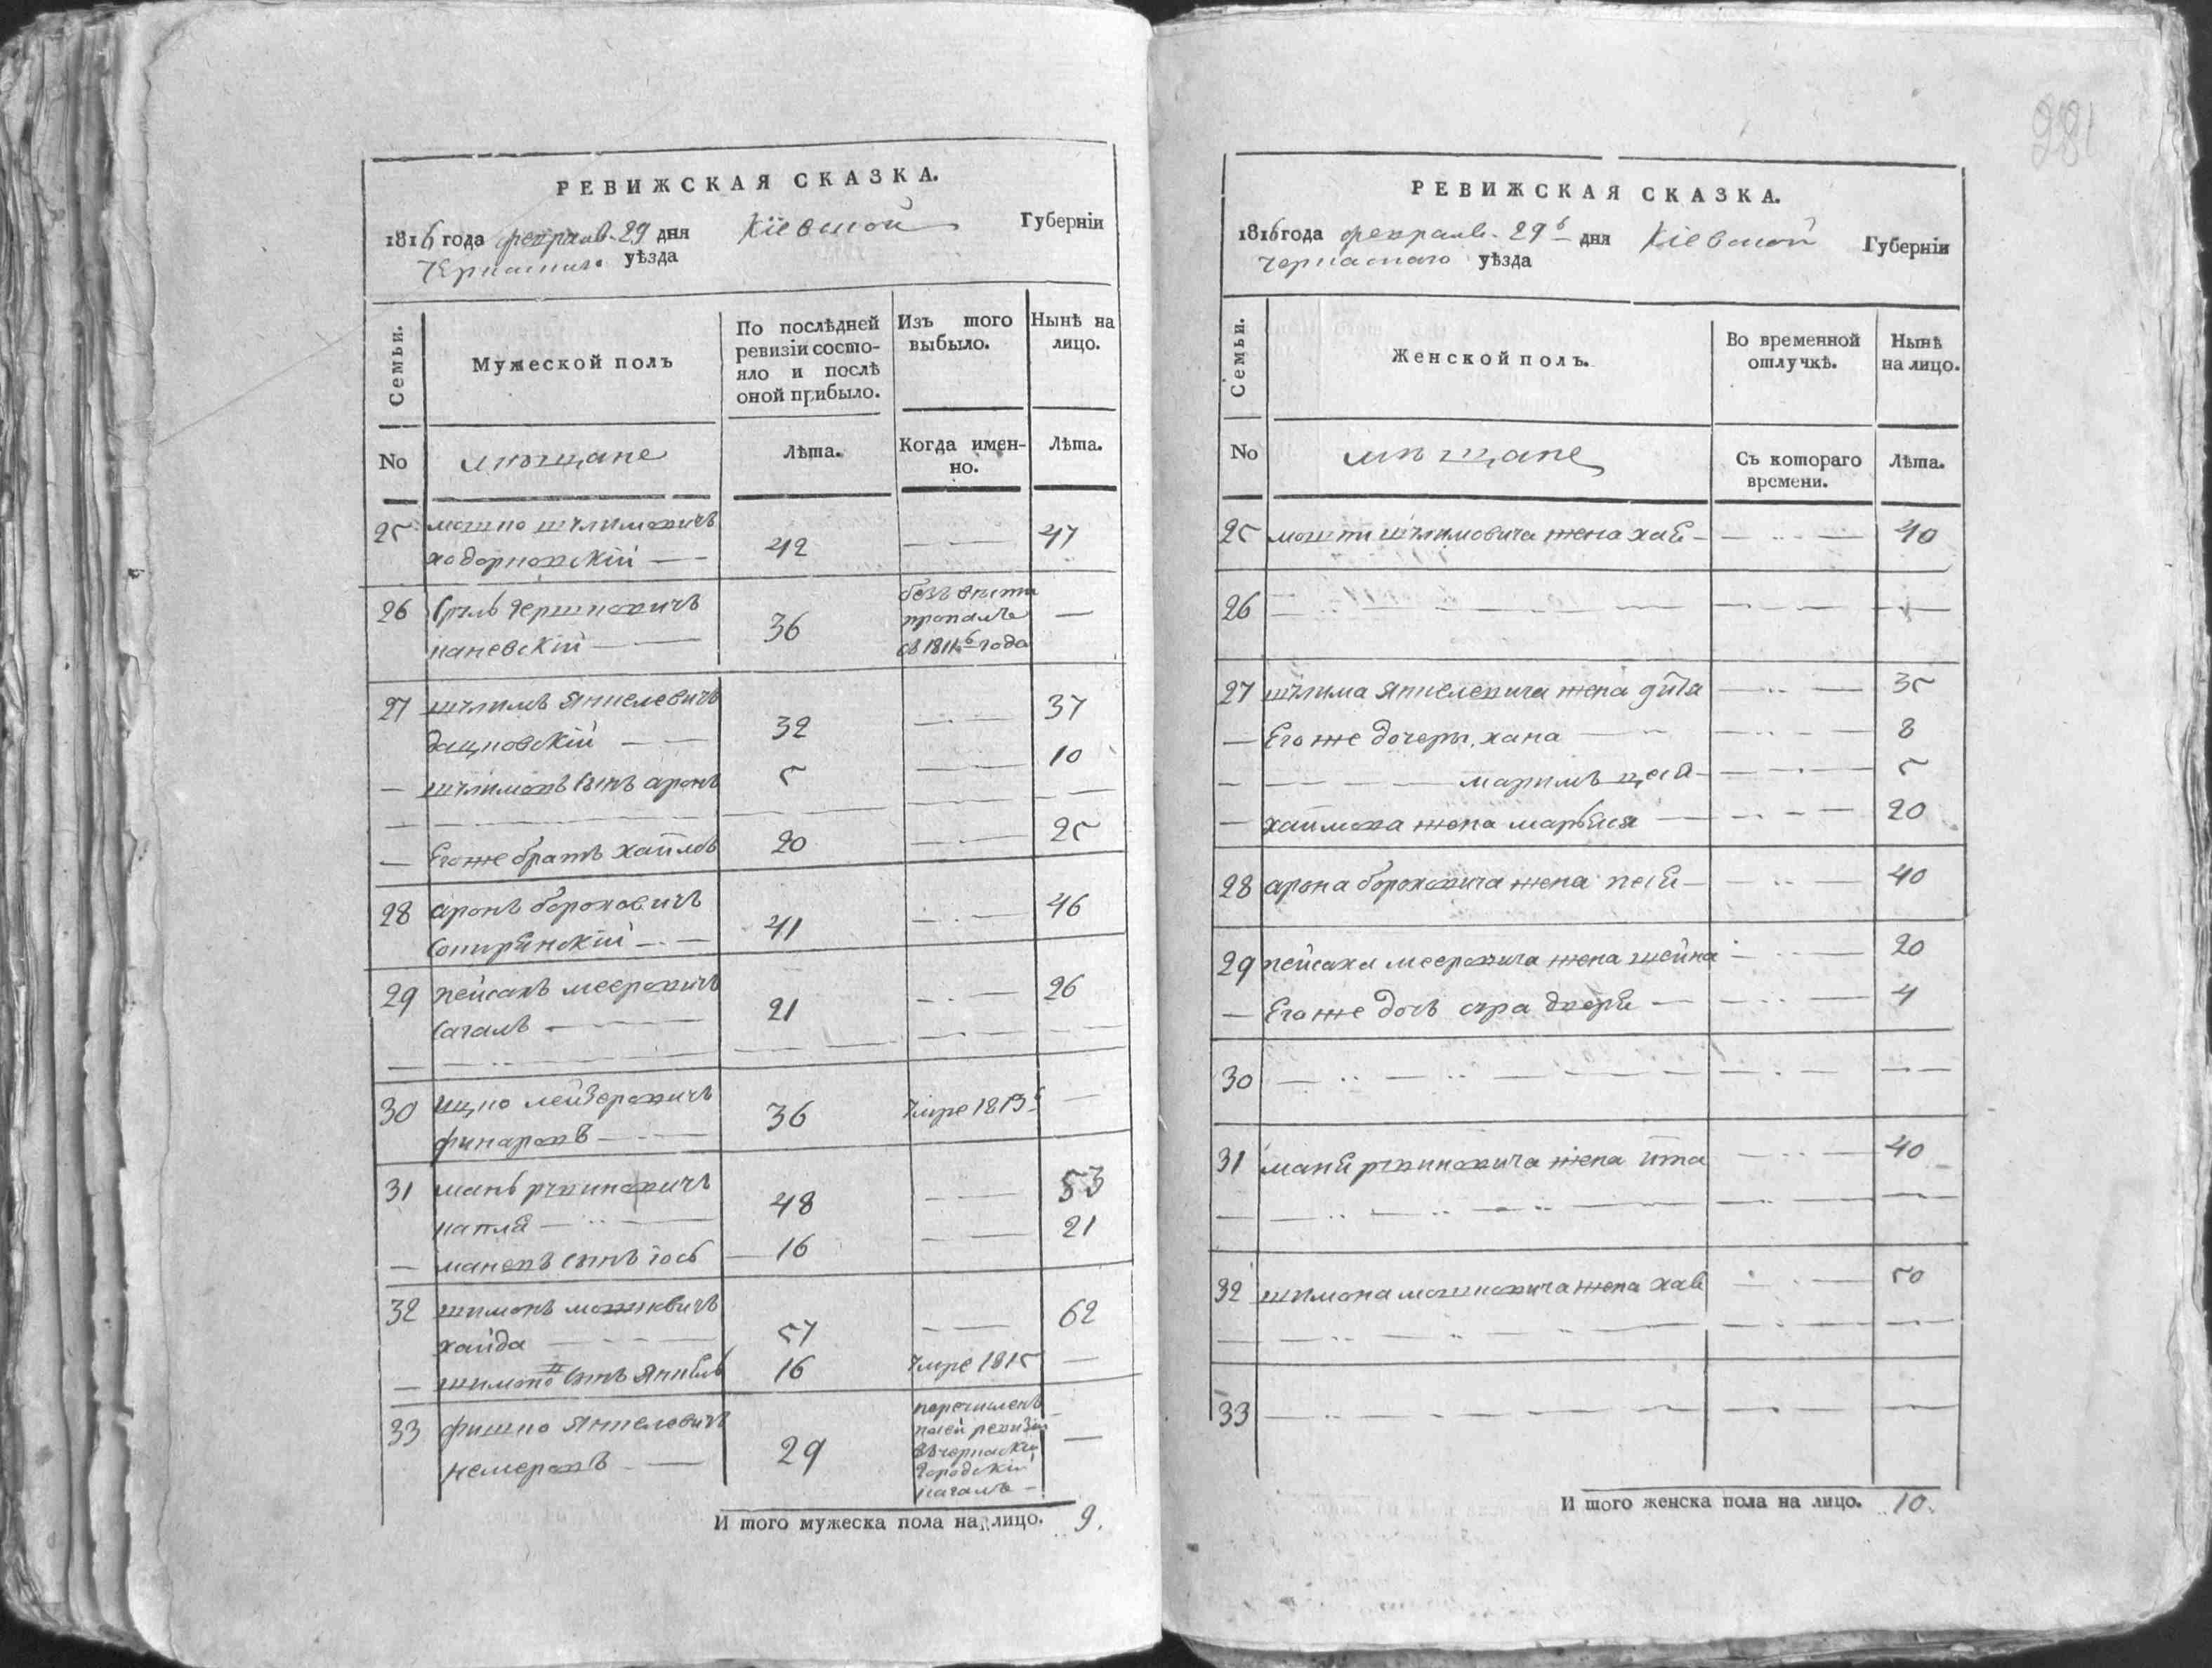 281
РЕВИЖСКАЯ СКАЗКА.
1816 года феврал. 29 дня Кіевской Губерніи
Черкаскаго уѣзда
Семьи.
Мужеской полъ
По послѣдней ревизіи состояло и послѣ оной прибыло.
Изъ того выбыло.
Нынѣ на лицо.
No
мѣщане
Лѣта.
Когда именно.
Лѣта.
25 мошко шлиомовичъ
ходорковскій 42 47
26 Сруль гершковичъ
каневскій 36 безъ вѣсти пропалъ съ 1811го года
27 шлиомъ Янкелевичъ
дацковскій 32 37
— шлиомовъ сынъ аронъ 5 10
— Его же братъ хаимъ 20 25
28 аронъ бороховичъ
41 46
29 пейсахъ мееровичъ
сагалъ 21 26
30 ицко лейзеровичъ
36 умре 1813го
31 мань рувиновичъ
капля 48 53
— маневъ сынъ іось 16 21
32 шимонъ мошковичъ
хайда 57 62
— шимона сынъ Янкель 16 умре 1815
33 фишко Янкелевичъ
немеровъ 29 перечисленъ по сей ревизіи въ черкаскій городскій кагалъ
И того мужеска пола на лицо. 9.
РЕВИЖСКАЯ СКАЗКА.
1816 года феврал. 29го дня Кіевской Губерніи
черкаскаго уѣзда
Семьи.
Женской полъ.
Во временной отлучкѣ.
Нынѣ на лицо.
No
мѣщане
Съ котораго времени.
Лѣта.
25 мошки шлиомовича жена хая 40
26
27 шлиома Янкелевича жена 35
— Его же дочери, хана 8
— маримъ 5
— хаимова жена 20
28 арона бороховича жена песя 40
29 пейсаха мееровича жена шейна 20
— Его же дочь сура двойра 4
30
31 маня рувиновича жена ита 40
32 шимона мошковича жена хая 50
33
И того женска пола на лицо. 10.